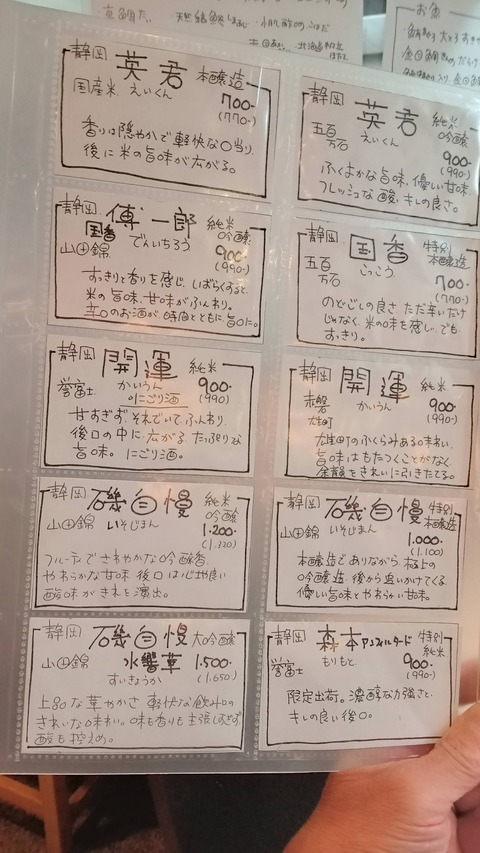 真鯛
お魚
静岡 英君 本醸造
国産米 えいくん 700-
(770-)
香りは隠やかで軽快な口当り、
後に米の旨味が広がる。
静岡 英君 純米吟醸
五百万石 えいくん 900-
(990-)
ふくよかな旨味、優しい甘味、
フレッシュな酸、キレの良さ。
静岡 國香 傳一郎 純米吟醸
山田錦 でんいちろう 900-
(990-)
すっきりと香りを感じ、しばらくすると、
米の旨味、甘味がふんわり。
辛口のお酒が、時間とともに、旨口に。
静岡 国香 特別本醸造
五百万石 こっこう 700-
(770-)
のどごしの良さ、ただ辛いだけ
じゃなく、米の味を感じ、でも、
すっきり。
静岡 開運 純米
誉富士 かいうん 900-
にごり酒 (990)
甘すぎず、それでいて、ふんわり、
後口の中に広がる、たっぷりな
旨味。にごり酒。
静岡 開運 純米
赤磐雄町 かいうん 900-
(990-)
雄町のふくらみある味わい、
旨味はもたつくことがなく、
余韻をきれいに引きたてる。
静岡 磯自慢 純米吟醸
山田錦 いそじまん 1.200-
(1.320)
フルーティでさわやかな吟醸香、
やわらかな甘味 後口は心地良い
酸味がきれを演出。
静岡 磯自慢 特別本醸造
山田錦 いそじまん 1.000-
(1.100)
本醸造でありながら、極上の
吟醸造、後から追いかけてくる
優しい旨味とやわらかい甘味。
静岡 磯自慢 大吟醸
山田錦 水響華 1.500-
すいきょうか (1.650)
上品な華やかさ 軽快な飲み口の
きれいな味わい。味も香りも主張しすぎず
酸も控えめ。
静岡 森本 アンフィルタード 特別純米
誉富士 もりもと 900-
(990-)
限定出荷。濃醇な力強さと、
キレの良い後口。